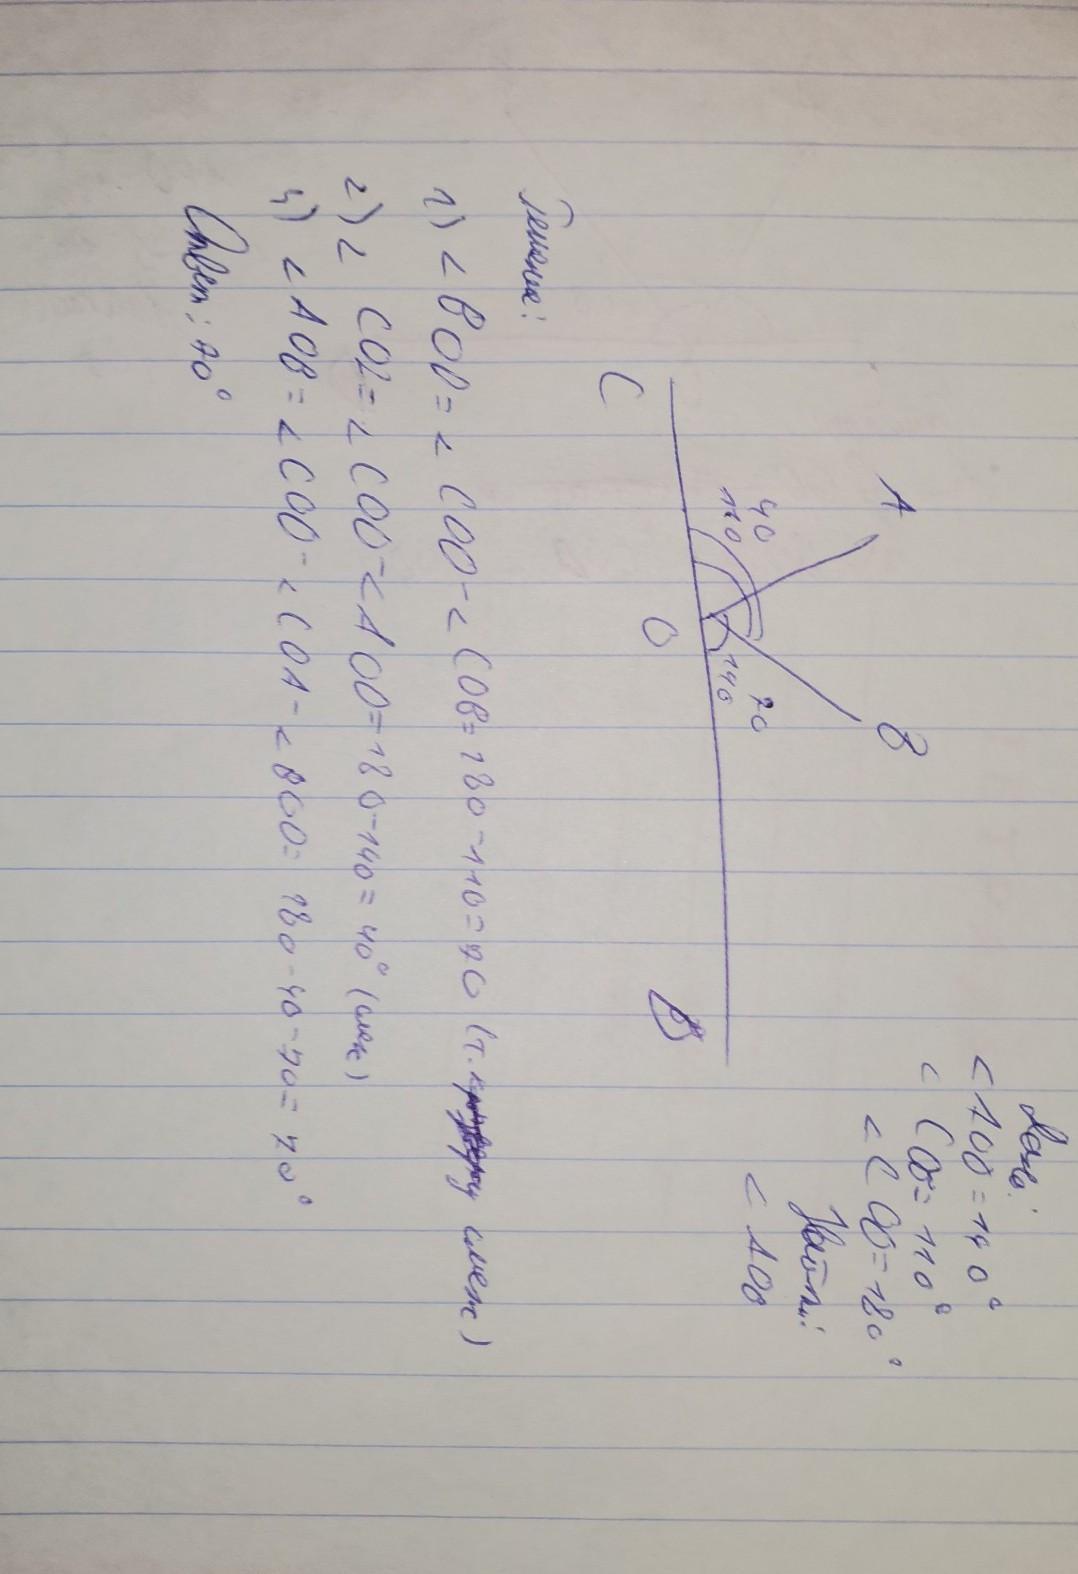 Дано:
< AOD = 140°
< COB = 110°
< COD = 180°
Найти:
< AOB
A
B
40
110
70
140
C
O
D
Решение:
1) < BOD = < COD - < COB = 180 - 110 = 70 (т.к смеж)
2) < COA = < COD - < AOD = 180 - 140 = 40° (смеж)
3) < AOB = < COD - < COA - < BOD = 180 - 40 - 70 = 70°
Ответ: 70°